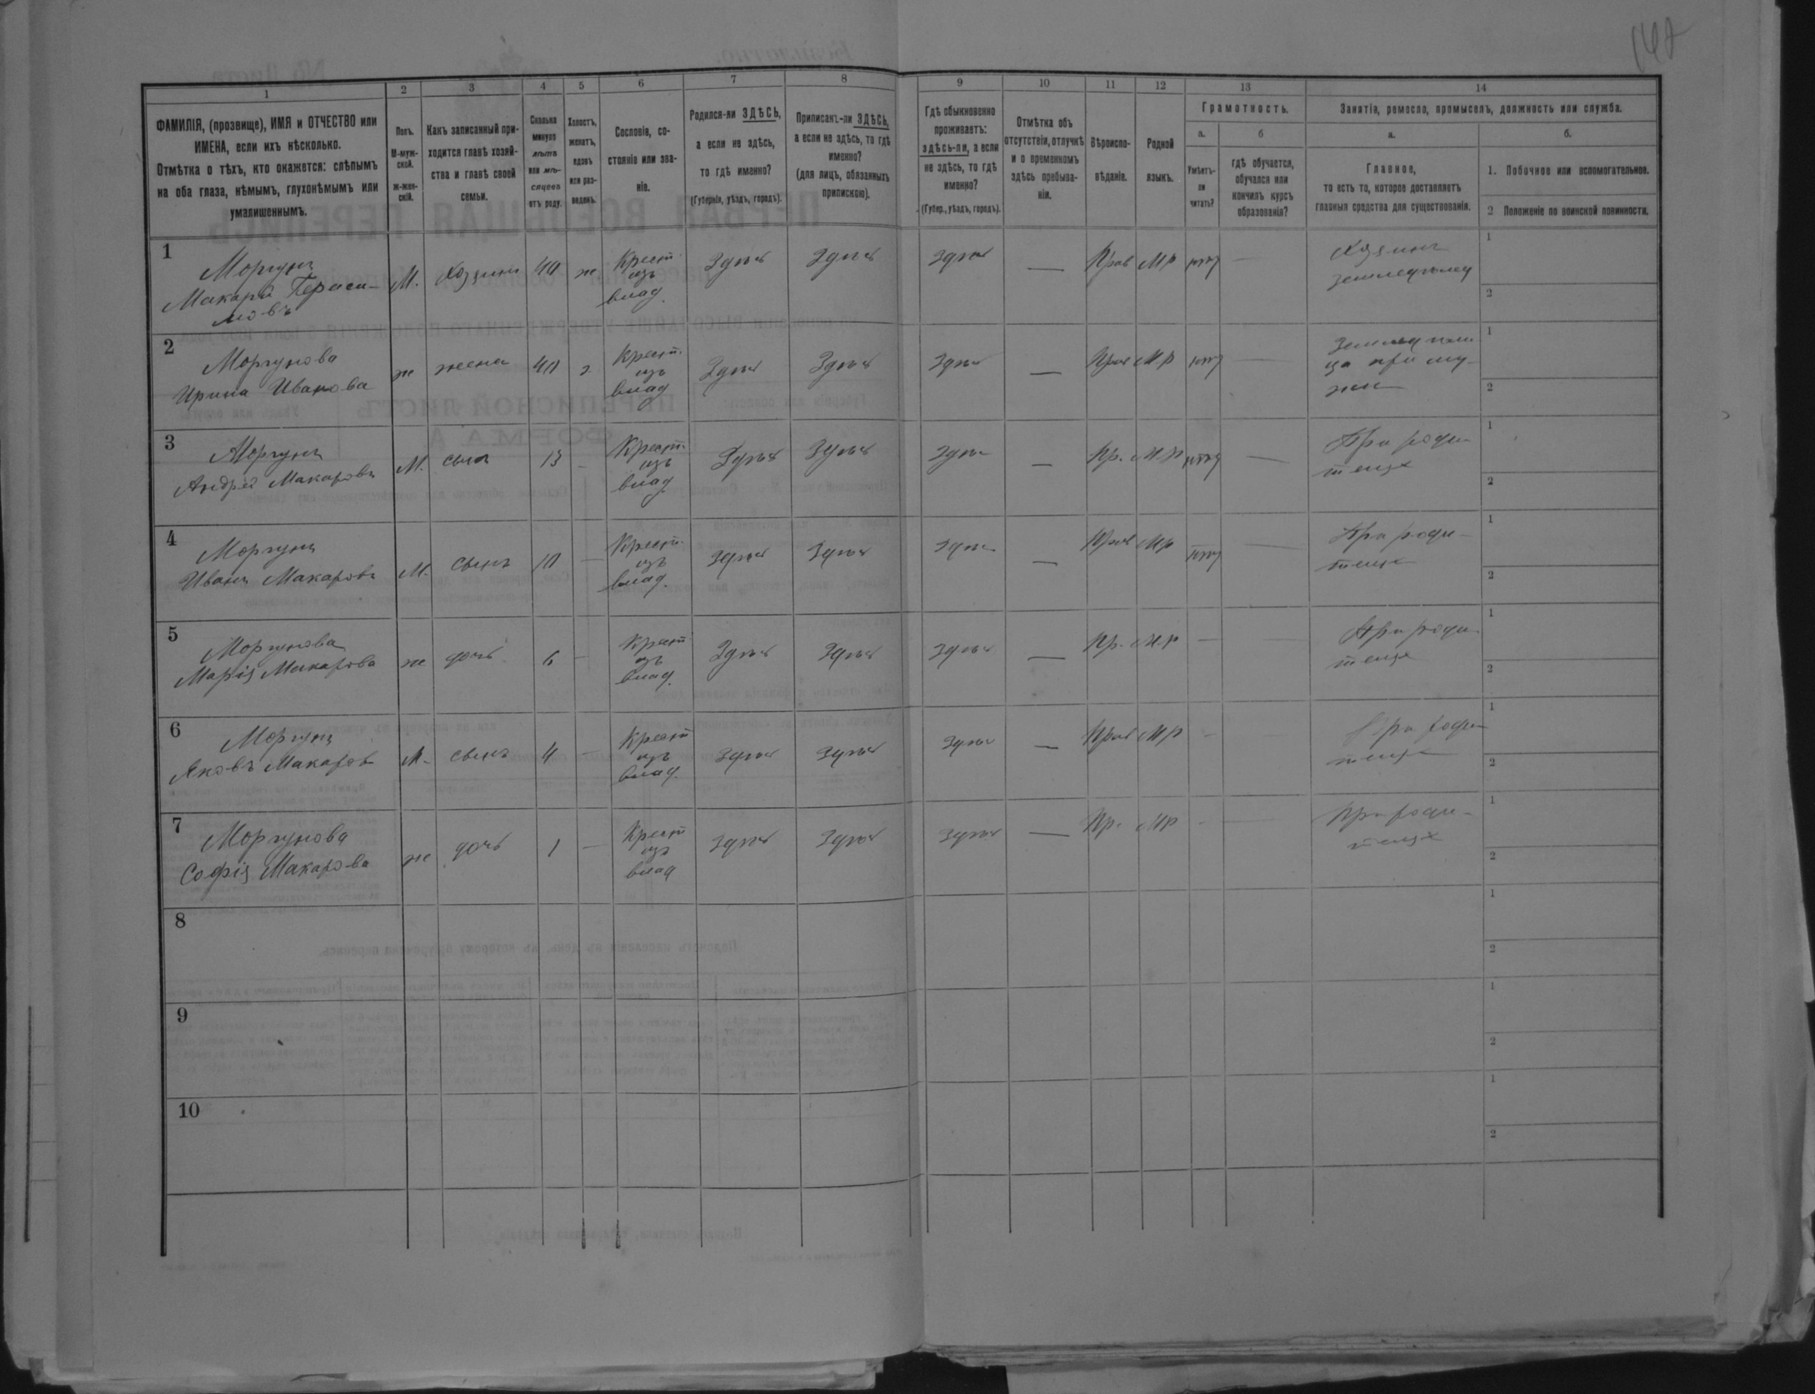 1
2
3
4
5
6
7
8
9
10
11
12
13
14
ФАМИЛІЯ, (прозвище), ИМЯ и ОТЧЕСТВО или
ИМЕНА, если ихъ нѣсколько.
Отмѣтка о тѣхъ, кто окажется: слѣпымъ
на оба глаза, нѣмымъ, глухонѣмымъ или
умалишеннымъ.
Полъ.
М-муж-
ской.
Ж-жен-
скій.
Какъ записанный при-
ходится главѣ хозяй-
ства и главѣ своей
семьи.
Сколько
минуло
лѣтъ
или мѣ-
сяцевъ
отъ роду.
Холостъ,
женатъ,
вдовъ
или раз-
веденъ.
Сословіе, со-
стояніе или зва-
ніе.
Родился-ли ЗДѢСЬ,
а если не здѣсь,
то гдѣ именно?
(Губернія, уѣздъ, городъ).
Приписанъ-ли ЗДѢСЬ,
а если не здѣсь, то гдѣ
именно?
(для лицъ, обязанныхъ
припискою).
Гдѣ обыкновенно
проживаетъ:
здѣсь-ли, а если
не здѣсь, то гдѣ
именно?
(Губер., уѣздъ, городъ).
Отмѣтка объ
отсутствіи, отлучкѣ
и о временномъ
здѣсь пребыва-
ніи.
Вѣроиспо-
вѣданіе.
Родной
языкъ.
Грамотность.
а.
б
Умѣетъ-
ли
читать?
гдѣ обучается,
обучался или
кончилъ курсъ
образованія?
Занятіе, ремесло, промыселъ, должность или служба.
а.
б.
Главное,
то есть то, которое доставляетъ
главныя средства для существованія.
1. Побочное или вспомогательное.
2 Положеніе по воинской повинности.
1
Моргунъ
Макарій Гераси-
мовъ
М.
Хозяинъ
40
ж
Крест.
изъ
влад.
Здѣсь
Здѣсь
Здѣсь
—
Прав
Мр
нѣтъ
—
Хозяинъ
земледѣлец
1
2
2
Моргунова
Ирина Иванова
ж
жена
40
з
Крест.
изъ
влад
Здѣсь
Здѣсь
Здѣсь
—
Прав
Мр
нѣтъ
—
1
2
3
Моргунъ
Андрей Макаровъ
М.
сынъ
13
-
Крест.
изъ
влад.
Здѣсь
Здѣсь
Здѣсь
—
Пр.
Мр
нѣтъ
—
При роди-
телях
1
2
4
Моргунъ
Иванъ Макаровъ
М.
сынъ
10
—
Крест.
изъ
влад.
Здѣсь
Здѣсь
Здѣсь
—
Прав
Мр
нѣтъ
—
При роди-
телях
1
2
5
Моргунова
Марія Макарова
ж
дочь
6
—
Крест
изъ
влад.
Здѣсь
Здѣсь
Здѣсь
—
Пр.
Мр
—
—
При роди-
телях
1
2
6
Моргунъ
Яковъ Макаров
М.
сынъ
4
—
Крест
изъ
влад.
Здѣсь
Здѣсь
Здѣсь
—
Прав
Мр
-
—
При роди-
телях
1
2
7
Моргунова
Софія Макарова
ж
дочь
1
—
Крест
изъ
влад
Здѣсь
Здѣсь
Здѣсь
—
Пр.
Мр
-
—
При роди-
телях
1
2
8
1
2
9
1
2
10
1
2